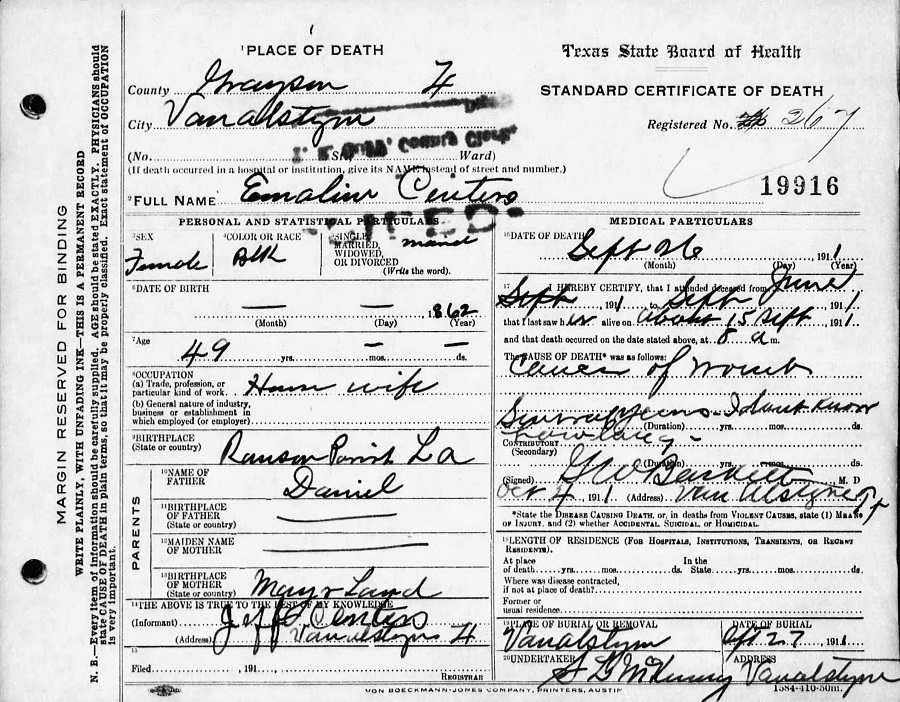 MARGIN RESERVED FOR BINDING
WRITE PLAINLY, WITH UNFADING INK—THIS IS A PERMANENT RECORD
N. B.—Every item of information should be carefully supplied. AGE should be stated EXACTLY. PHYSICIANS should
state CAUSE OF DEATH in plain terms, so that it may be properly classified. Exact statement of OCCUPATION
is very important.
1 PLACE OF DEATH
County Grayson
City Vanalstyne
(No. St. Ward)
(If death occurred in a hospital or institution, give its NAME instead of street and number.)
2 FULL NAME Emaline Centers
Texas State Board of Health
STANDARD CERTIFICATE OF DEATH
Registered No. 267
19916
PERSONAL AND STATISTICAL PARTICULARS
3 SEX
Female
4 COLOR OR RACE
Blk
5 SINGLE,
MARRIED,
WIDOWED,
OR DIVORCED
(Write the word).
married
6 DATE OF BIRTH
— — 1862
(Month) (Day) (Year)
7 Age
49 yrs. — mos. — ds.
8 OCCUPATION
(a) Trade, profession, or
particular kind of work. House wife
(b) General nature of industry,
business or establishment in
which employed (or employer)
9 BIRTHPLACE
(State or country)
Parish La
PARENTS
10 NAME OF
FATHER
Daniel
11 BIRTHPLACE
OF FATHER
(State or country)
12 MAIDEN NAME
OF MOTHER
13 BIRTHPLACE
OF MOTHER
(State or country)
Mary Land
14 THE ABOVE IS TRUE TO THE BEST OF MY KNOWLEDGE
(Informant) Jeff Centers
(Address) Vanalstyne
15
Filed 191
REGISTRAR
MEDICAL PARTICULARS
16 DATE OF DEATH
Sept 26, 1911
(Month) (Day) (Year)
17 I HEREBY CERTIFY, that I attended deceased from June
Sept 1911 to Sept 1911
that I last saw her alive on about 15 Sept, 1911
and that death occurred on the date stated above, at 8 a m.
The CAUSE OF DEATH* was as follows:
Cancer of womb
I dont know
(Duration) yrs. mos. ds.
how long
CONTRIBUTORY
(Secondary)
(Duration) yrs. mos. ds.
(Signed) M. D
Oct 4, 1911 (Address) Van Alstyne Tx
*State the DISEASE CAUSING DEATH, or, in deaths from VIOLENT CAUSES, state (1) MEANS
OF INJURY, and (2) whether ACCIDENTAL SUICIDAL, or HOMICIDAL.
18 LENGTH OF RESIDENCE (FOR HOSPITALS, INSTITUTIONS, TRANSIENTS, OR RECENT
RESIDENTS).
At place In the
of death yrs. mos. ds. State yrs. mos. ds.
Where was disease contracted,
if not at place of death?
Former or
usual residence
19 PLACE OF BURIAL OR REMOVAL
Vanalstyne
DATE OF BURIAL
27, 1911
20 UNDERTAKER
ADDRESS
Vanalstyne
VON BOECKMANN-JONES COMPANY, PRINTERS, AUSTIN
1584-410-50m.